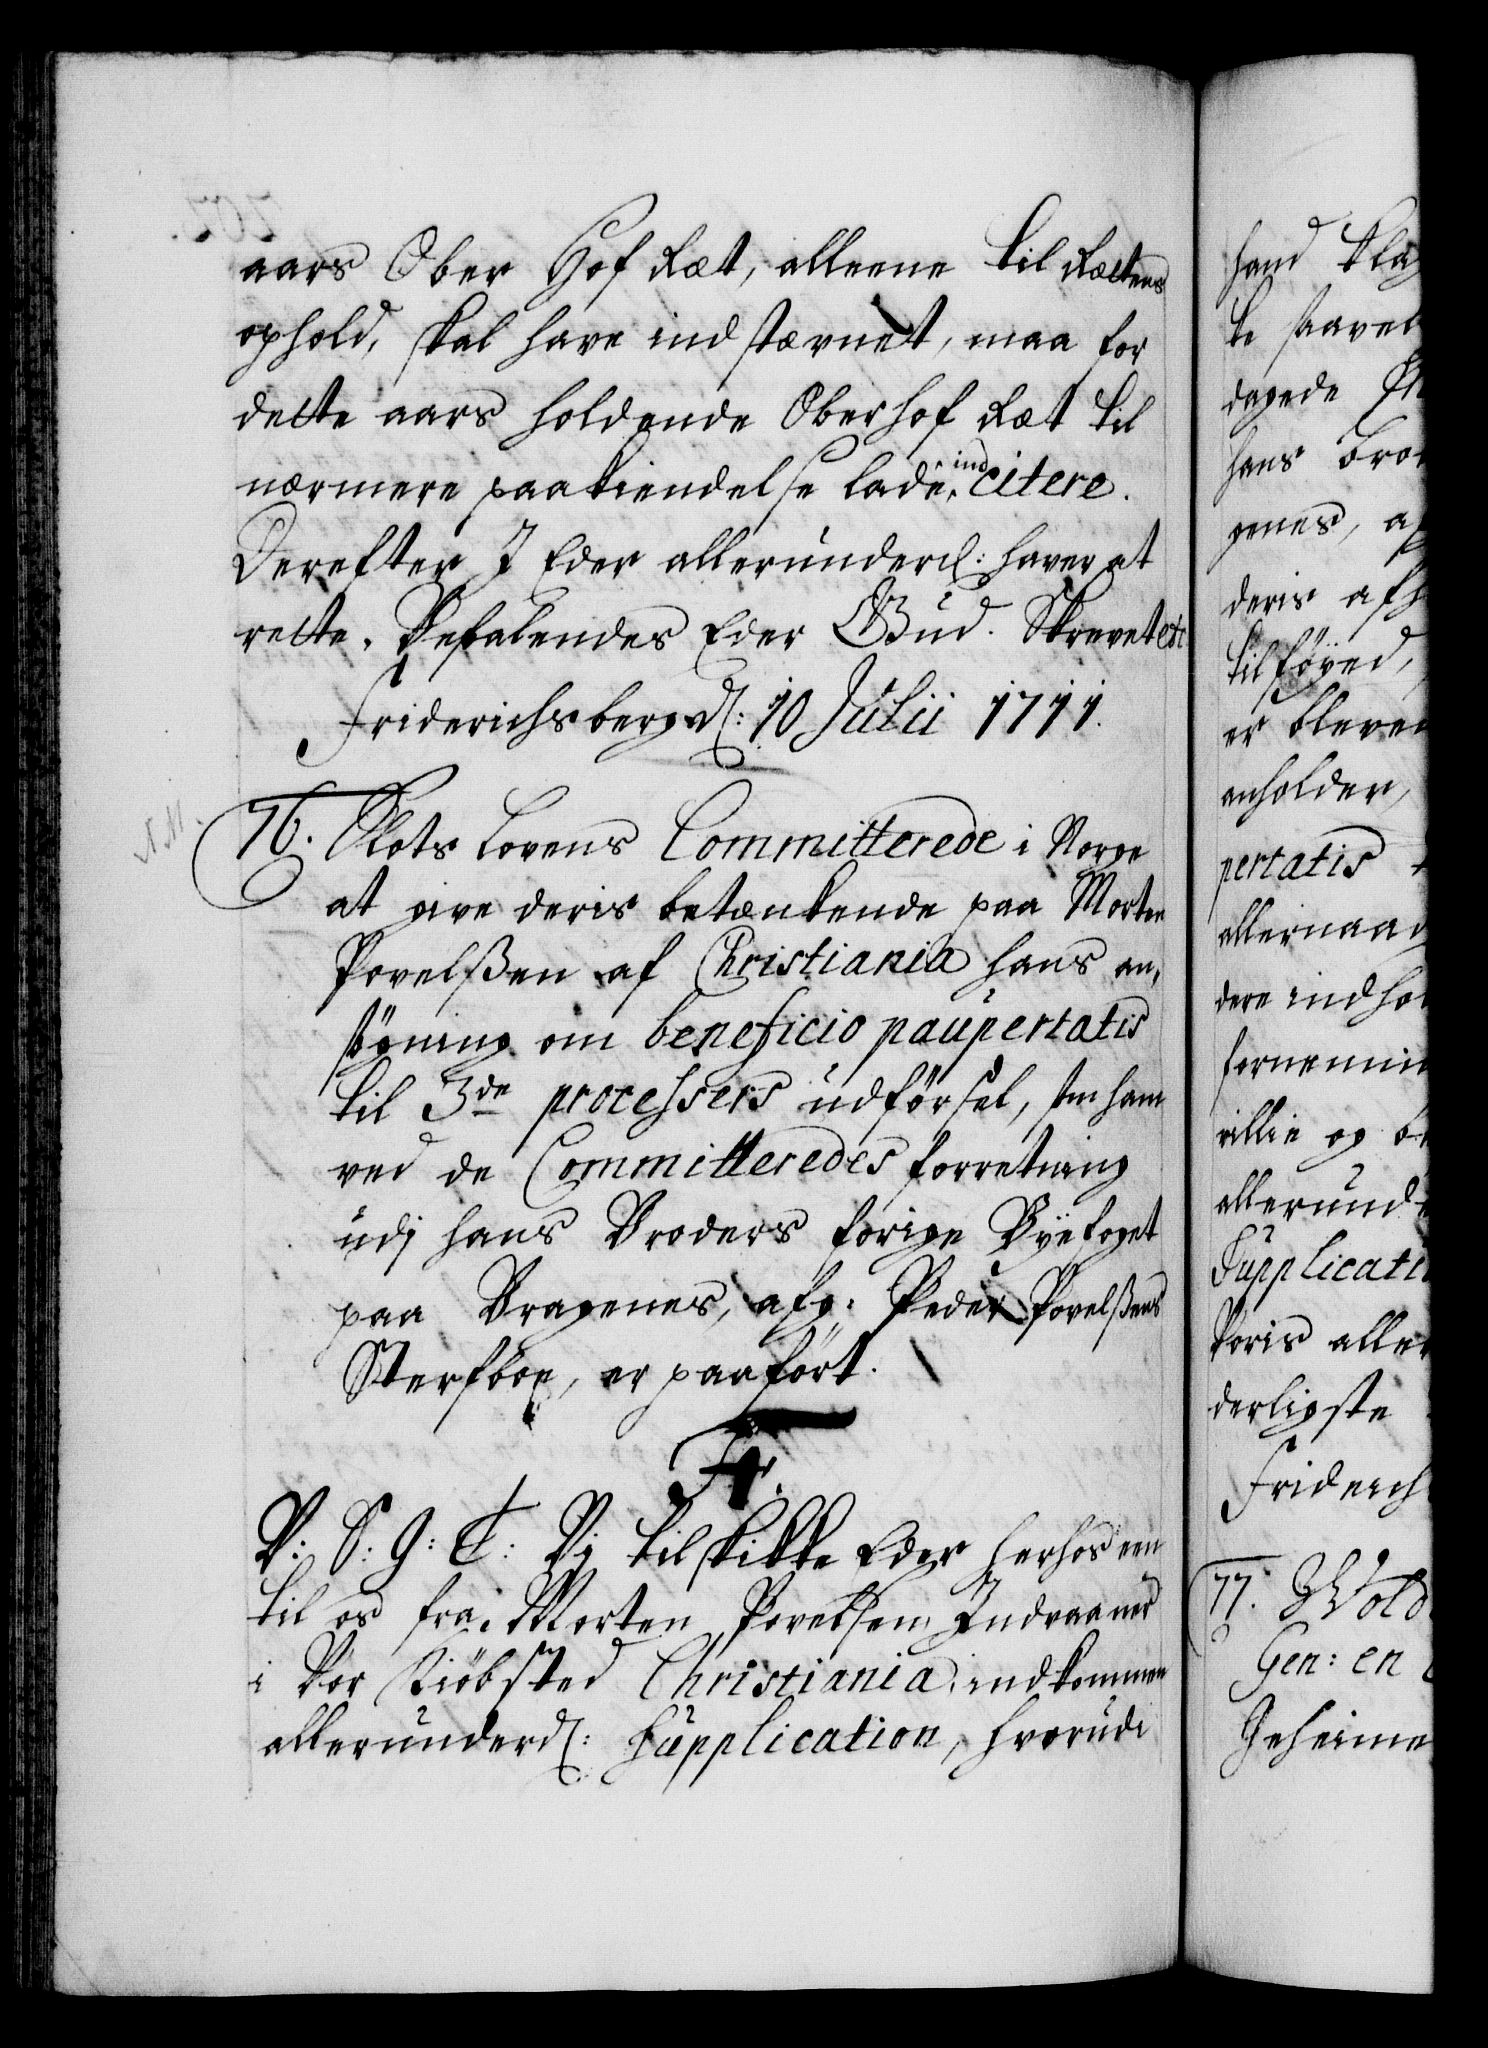 aars Ober Hof Ræt, alleene til Rættens
ophold, skal have indstævnet, maa for
dette aars holdende Oberhof Ræt til
nærmere paakiendelse lade indcitere.
Derefter I Eder allerunderd: haver at
rette. Befalendes Eder Gud. Skrevet etc
Friderichsberg d: 10 Julii 1711.
76. Slots Lovens Committerede i Norge
at give deris betænkende paa Morten
Povelßen af Christiania hans an-
søgning om beneficio paupertatis
til 3de processers udførsel, som ham
ved de Committeredes forretning
udj hans Broders forige Byefoget
paa Bragenes, afg: Peder Povelßens
Sterfboe, er paaført.
F4.
V: S: G: T: Vj tilskikke Eder herhos een
til os fra Morten Povelsen Indvaaner
i Vor Kiøbsted Christiania, indkommen
allerunderd: Supplication, hvorudi
hand klag
te saavel
dagede
hans bro
genes, a
deris af
tilføyed,
er bleven
anholder,
pertatis
allernaad
dere indho
fornemme
villie og b
allerunde
Supplicati
Voris aller
derligste
Friderich
77. Wold
Gen: en
Geheime